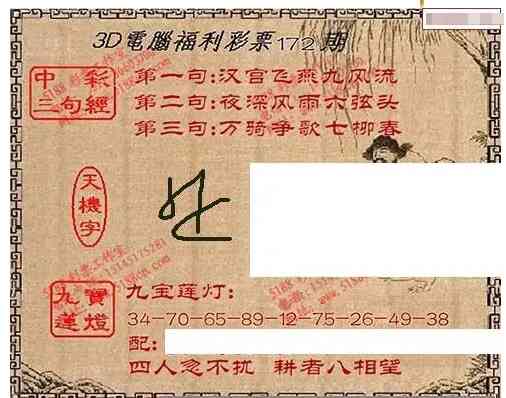 3D電腦福利彩票172期
中彩
三句經
第一句:汉宫飞燕九风流
第二句:夜深风雨六弦头
第三句:万骑争歌七柳春
天機字
九寶
蓮燈
九宝莲灯:
34-70-65-89-12-75-26-49-38
配:
四人急不扰 耕者八相望